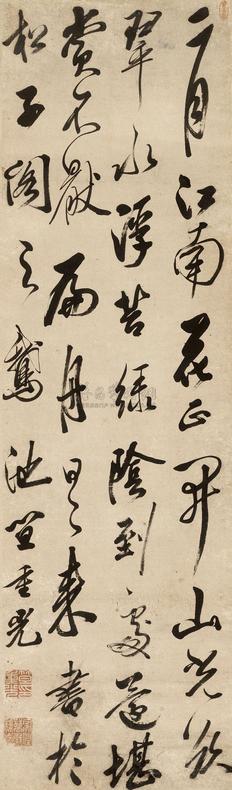 二月江南花正开山光欲
翠水浮苔绿阴到处还堪
赏不厌扁舟日日来书于
松子阁之鹅池笪重光